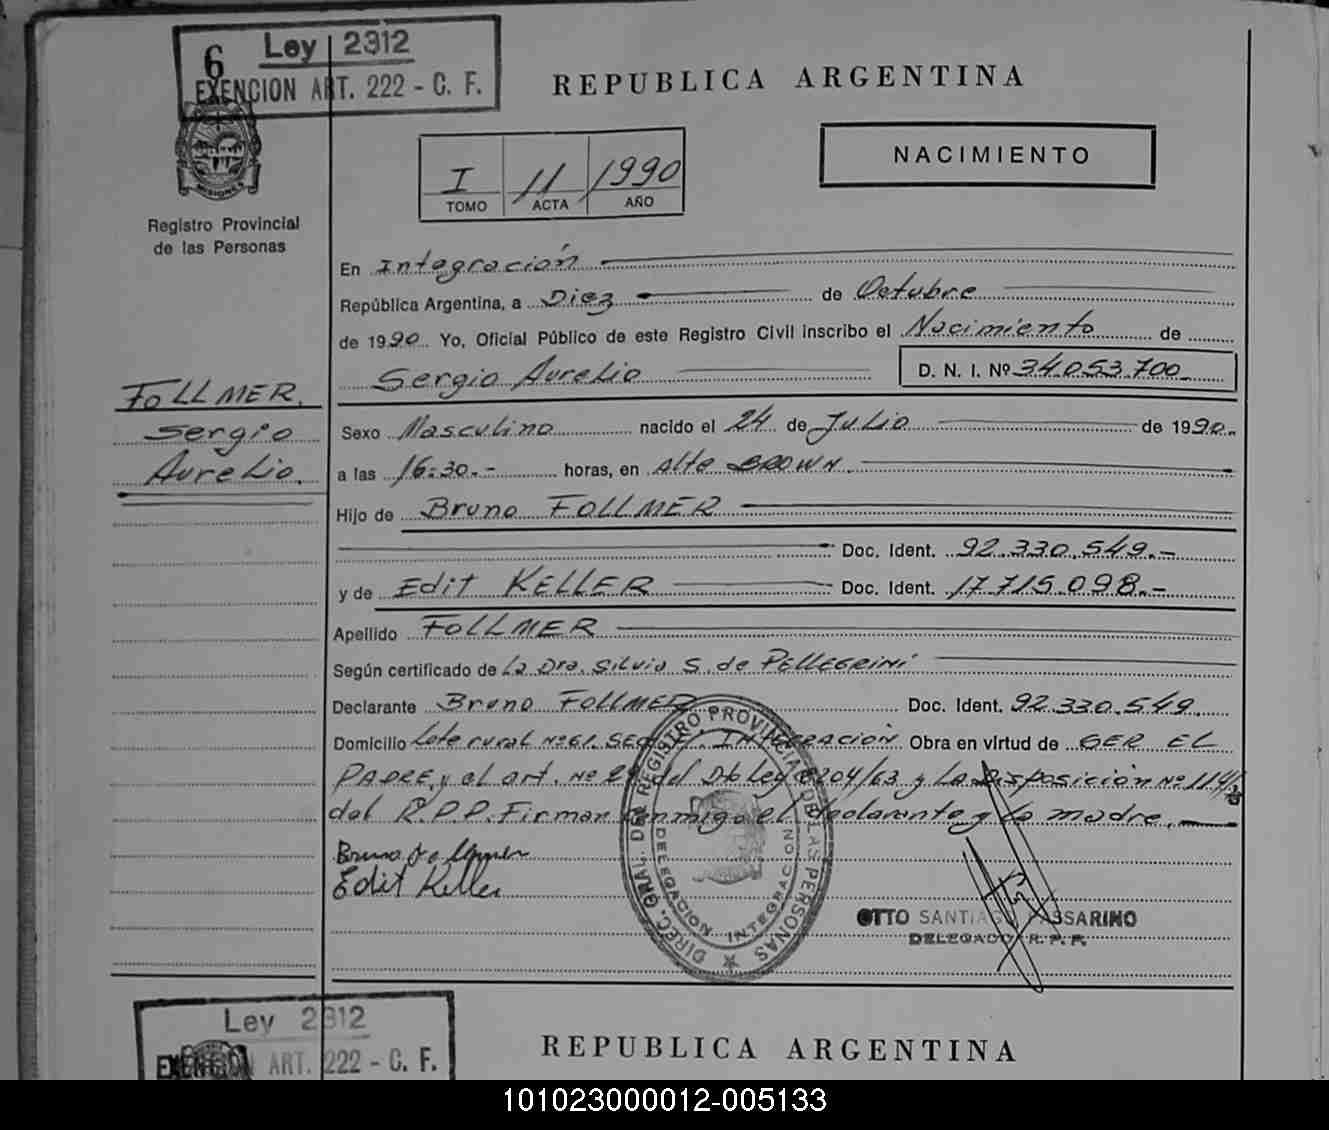 6
Ley 2312
EXENCION ART. 222 - C. F.
REPUBLICA ARGENTINA
MISIONES
Registro Provincial
de las Personas
I 11 1990
TOMO ACTA AÑO
NACIMIENTO
En Integración
República Argentina, a Diez de Octubre
de 1990 Yo, Oficial Público de este Registro Civil inscribo el Nacimiento de
Sergio Aurelio D. N. I. Nº 34.053.700
FOLLMER,
Sergio
Aurelio.
Sexo Masculino nacido el 24 de Julio de 1990.
a las 16:30.- horas, en Alte BROWN.
Hijo de Bruno FOLLMER
Doc. Ident. 92.330.549.-
y de Edit KELLER Doc. Ident. 17.715.098.-
Apellido FOLLMER
Según certificado de La Dra. Silvia S. de PELLEGRINI
Declarante Bruno FOLLMER Doc. Ident. 92.330.549.
Domicilio Lote rural Nº 61. INTEGRACION Obra en virtud de SER EL
PADRE, y el art. Nº del Dto Ley 8204/63 y La Disposición Nº 114/
del R.P.P. Firman conmigo el declarante y la madre.
Bruno Follmer
Edit Keller
DIREC. GRAL. DEL REGISTRO PROVINCIAL DE LAS PERSONAS
DELEGACION INTEGRACION
OTTO SANTIAGO PASSARINO
DELEGADO R. P. P.
Ley 2312
EXENCION ART. 222 - C. F.
REPUBLICA ARGENTINA
101023000012-005133